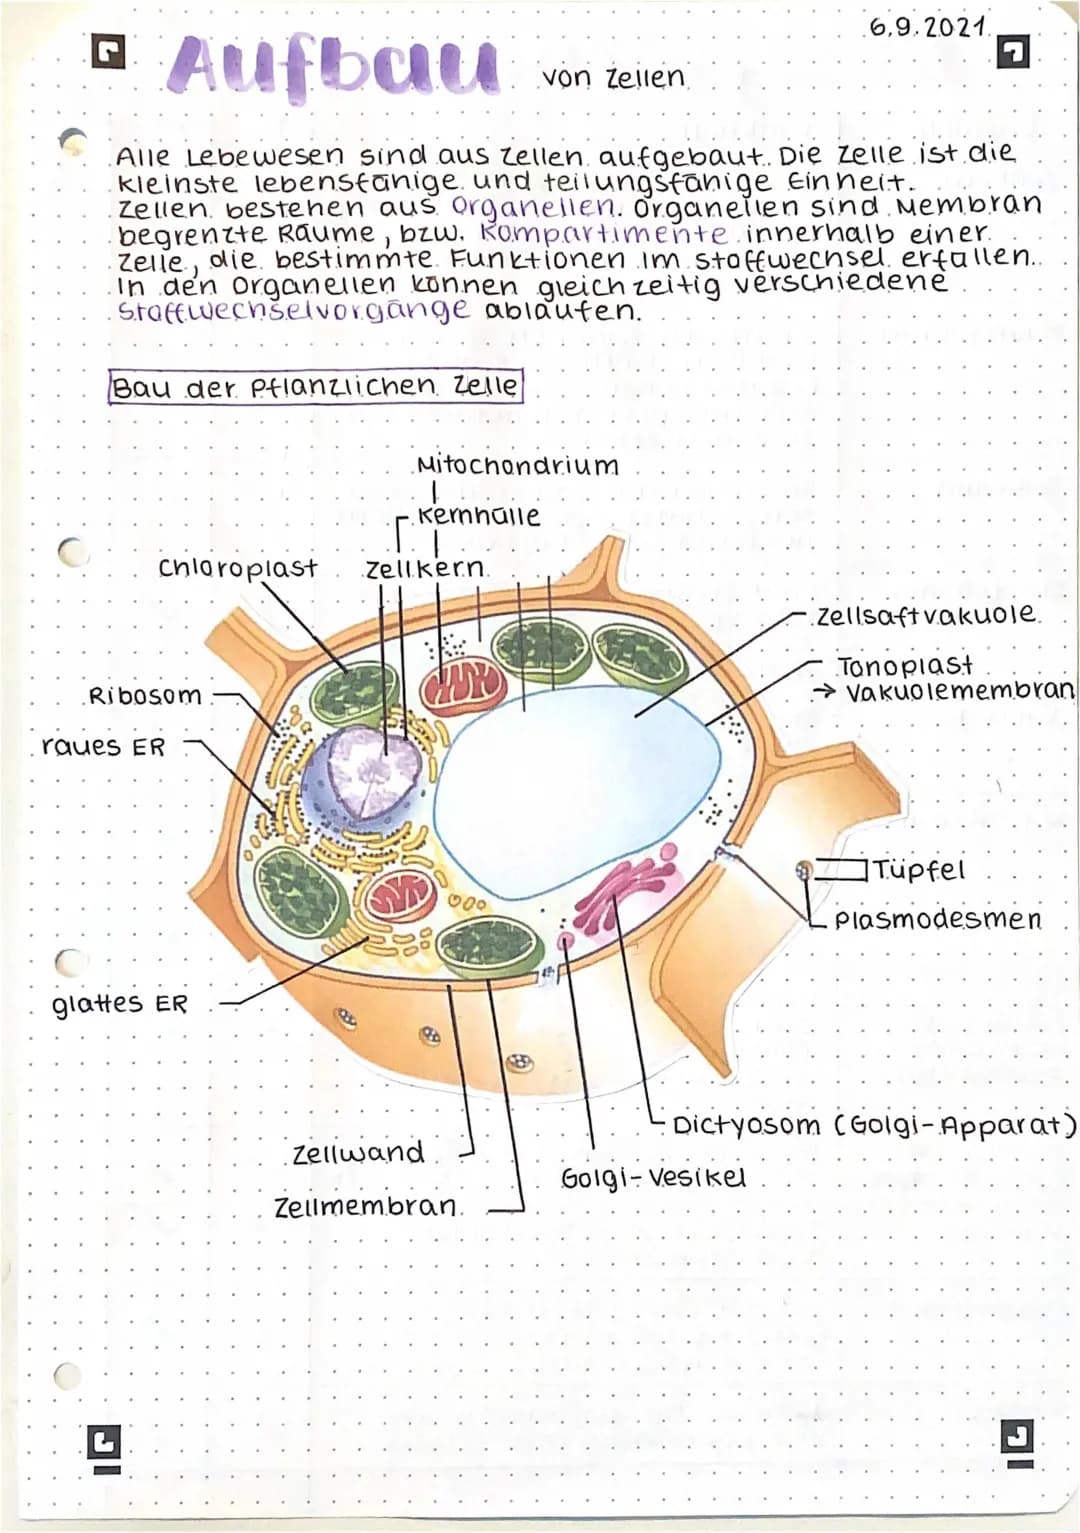 6.9.2021
Aufbau von Zellen
Alle Lebewesen sind aus Zellen aufgebaut. Die Zelle ist die
kleinste lebensfähige und teilungsfähige Einheit.
Zellen bestehen aus Organellen. Organellen sind Membran
begrenzte Räume, bzw. Kompartimente innerhalb einer
Zelle, die bestimmte Funktionen im Stoffwechsel erfüllen.
In den Organellen können gleichzeitig verschiedene
Stoffwechselvorgänge ablaufen.
Bau der Pflanzlichen Zelle
Mitochondrium
Kernhülle
Chloroplast
Zellkern
Zellsaftvakuole
Tonoplast
→ Vakuolemembran
Ribosom
raues ER
Tüpfel
Plasmodesmen
glattes ER
Dictyosom (Golgi-Apparat)
Zellwand
Golgi-Vesikel
Zellmembran